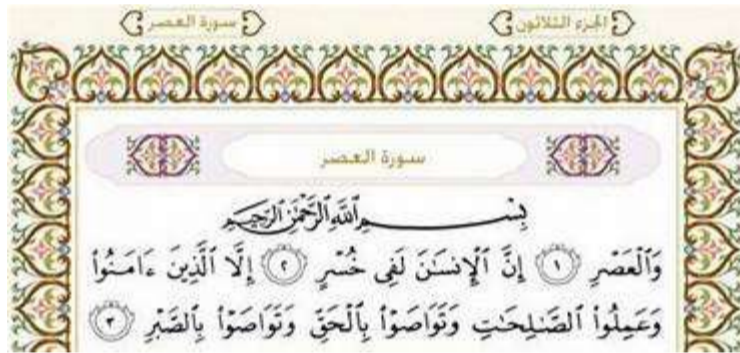 الجزء الثلاثون
سورة العصر
سورة العصر
بِسْمِ ٱللَّهِ ٱلرَّحْمَٰنِ ٱلرَّحِيمِ
وَٱلْعَصْرِ ١ إِنَّ ٱلْإِنسَٰنَ لَفِى خُسْرٍ ٢ إِلَّا ٱلَّذِينَ ءَامَنُوا۟
وَعَمِلُوا۟ ٱلصَّٰلِحَٰتِ وَتَوَاصَوْا۟ بِٱلْحَقِّ وَتَوَاصَوْا۟ بِٱلصَّبْرِ ٣